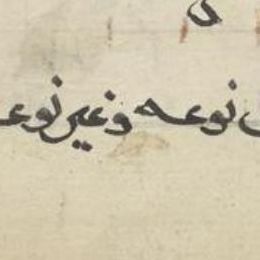 نوعه وغير نوعه